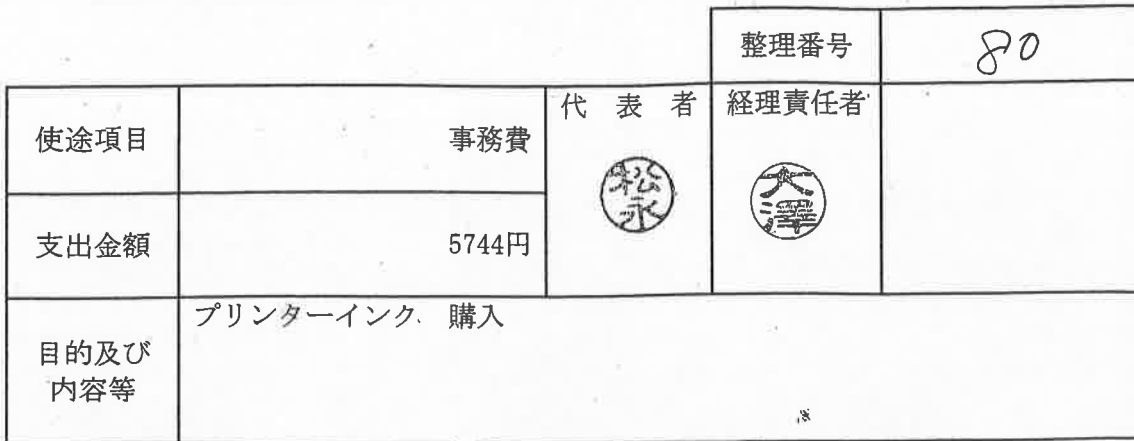 整理番号 80
使途項目 事務費 代表者 経理責任者
松永 大澤
支出金額 5744円
目的及び内容等 プリンターインク 購入